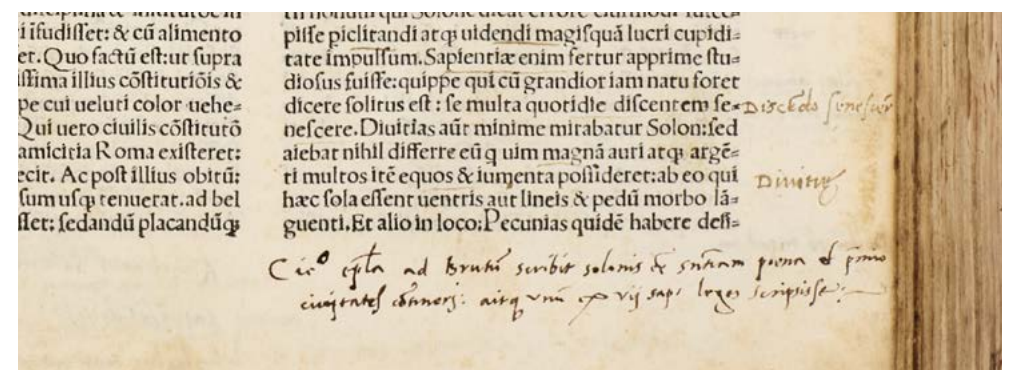 i ifudiſſet: & cū alimento
et. Quo factū eſt: ut ſupra
iſſima illius cōſtitutiōis &
pe cui ueluti color uehe⸗
Qui uero ciuilis cōſtitutō
amicitia Roma exiſteret:
ecit. Ac poſt illius obitū:
ſum uſqꝫ tenuerat. ad bel
ſſet: ſedandū placandūqꝫ
piſſe piclitandi atqꝫ uidendi magiſquā lucri cupidi⸗
tate impulſum. Sapientiæ enim fertur apprime ſtu⸗
dioſus fuiſſe: quippe qui cū grandior iam natu foret
dicere ſolitus eſt: ſe multa quotidie diſcentem ſe⸗
neſcere. Diuitias aūt minime mirabatur Solon: ſed
aiebat nihil differre eū q uim magnā auri atqꝫ argē⸗
ti multos itē equos & iumenta poſſideret: ab eo qui
hæc ſola eſſent uentris aut lineis & pedū morbo lā⸗
guenti. Et alio in loco: Pecunias quidē habere deſi⸗
Discēdo senescere
Diuitie
Cicº epľa ad Brutū scribit solonis sn̄tiam poena et p̄mio
ciuitates cōtineri: aitqꝫ unū ex vij sapi leges scripsisse: